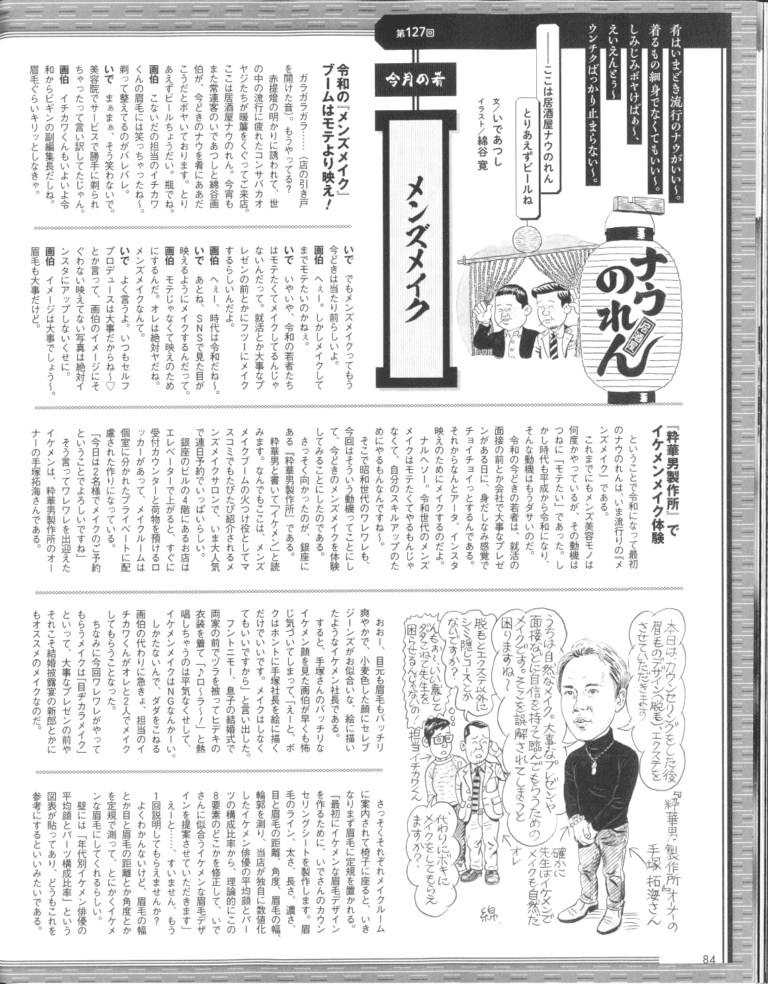 肴はいまどき流行のナウがいい〜。
着るもの細身でなくてもいい〜。
しみじみボヤけばぁ〜、
えいえんとぅ〜
ウンチクばっかり止まらない〜。
――ここは居酒屋ナウのれん
とりあえずビールね
文/いであつし
イラスト/綿谷 寛
ナウのれん
居酒屋
第127回
今月の肴
メンズメイク
令和の『メンズメイク』
ブームはモテより映え!
ガラガラガラ……(店の引き戸
を開けた音)。もうやってる?
赤提燈の明かりに誘われて、世
の中の流行に疲れたコンサバカオ
ヤジたちが暖簾をくぐってご来店。
ここは居酒屋ナウのれん。今宵も
また常連客のいであつしと綿谷画
伯が、今どきのナウを肴にああだ
こうだとボヤいております。とり
あえずビールちょうだい。瓶でね。
画伯 こないだの担当のイチカワ
くんの眉毛には笑っちゃったね〜。
剃って整えてるのがバレバレ。
いで まぁまぁ、そう笑わないで。
美容院でサービスで勝手に剃られ
ちゃったって言い訳してたじゃん。
画伯 イチカワくんもいよいよ令
和からビギンの副編集長だしね。
眉毛ぐらいキリッとしなきゃ。
いで でもメンズメイクってもう
今どきは当たり前らしいよ。
画伯 へぇー。しかしメイクして
までモテたいのかねぇ。
いで いやいや、令和の若者たち
はモテたくてメイクしてるんじゃ
ないんだって。就活とか大事なプ
レゼンの前とかにフツーにメイク
するらしいんだよ。
画伯 へぇー、時代は令和だね〜。
いで あとね、SNSで見た目が
映えるようにメイクするんだって。
画伯 モテじゃなくて映えのため
にするんだ。オレは絶対ヤだね。
メンズメイクなんて。
いで よく言うよ。いつもセルフ
プロデュースは大事だからね〜♡
とか言って、画伯のイメージにそ
ぐわない映えてない写真は絶対イ
ンスタにアップしないくせに。
画伯 イメージは大事でしょう〜。
眉毛も大事だけど。
『粋華男製作所』で
イケメンメイク体験
ということで令和になって最初
のナウのれんは、いま流行りの『メ
ンズメイク』である。
これまでにもメンズ美容モノは
何度かやっているが、その動機は
つねに「モテたい」であった。し
かし時代も平成から令和になり、
そんな動機はもうダサいのだ。
令和の今どきの若者は、就活の
面接の前とか会社で大事なプレゼ
ンがある日に、身だしなみ感覚で
チョイチョイっとするんである。
それからなんとアータ、インスタ
映えのためにメイクするのだよ。
ナルヘソー。令和世代のメンズ
メイクはモテたくてやるもんじゃ
なくて、自分のスキルアップのた
めにやるもんなんですね〜。
そこで昭和世代のワレワレも、
今回はそういう動機ってことにし
て、今どきのメンズメイクを体験
してみることにしたのである。
さっそく向かったのが、銀座に
ある『粋華男製作所』である。
粋華男と書いて「イケメン」と読
みます。なんでもここは、メンズ
メイクブームの火つけ役としてマ
スコミでもたびたび紹介されるメ
ンズメイクサロンで、いま大人気
で連日予約でいっぱいらしい。
銀座のビルの4階にあるお店は
エレベーターで上がると、すぐに
受付カウンターと荷物を預けるロ
ッカーがあって、メイクルームは
個室に分かれたプライベートに配
慮された作りになっている。
「今日は2名様でメイクのご予約
ということでよろしいですね」
そう言ってワレワレを出迎えた
イケメンは、粋華男製作所のオー
ナーの手塚拓海さんである。
おおー、目元も眉毛もバッチリ
爽やかで、小麦色した顔にセレブ
ジーンズがお似合いな、絵に描い
たようなイケメン社長である。
すると、手塚さんのバッチリな
イケメン顔を見た画伯が早くも怖
じ気づいてしまって、「えーと、ボ
クはホントに手塚社長を絵に描く
だけでいいです。メイクはしなく
てもいいですから」と言い出した。
フントニモー、息子の結婚式で
両家の前でヅラを被ってヒデキの
衣装を着て「♪ロ〜ラ〜!」と熱
唱しちゃうのは平気なくせして、
イケメンメイクはNGなんかーい。
しかたないんで、ダダをこねる
画伯の代わりに急きょ、担当のイ
チカワくんがオレと2人でメイク
してもらうことなった。
ちなみに今回ワレワレがやって
もらうメイクは「目ヂカラメイク」
といって、大事なプレゼンの前や
それこそ結婚披露宴の新郎とかに
もオススメのメイクなのだ。
さっそくそれぞれメイクルーム
に案内されて椅子に座ると、いき
なりまず眉毛に定規を置かれる。
「最初にイケメンな眉毛デザイン
を作るために、いでさんのカウン
セリングシートを製作します。眉
毛のライン、太さ、長さ、濃さ、
目と眉毛の距離、角度、眉毛の幅、
輪郭を測り、当店が独自に数値化
したイケメン俳優の平均顔とパー
ツの構成比率から、理論的にこの
8要素のどこかを修正して、いで
さんに似合うイケメンな眉毛デザ
インを提案させていただきます」
えーと……、すいません、もう
1回説明してもらえませんか?
よくわかんないけど、眉毛の幅
とか目と眉毛の距離とか角度とか
を定規で測って、とにかくイケメ
ンな眉毛にしてくれるらしい。
壁には「年代別イケメン俳優の
平均顔とパーツ構成比率」という
図表が貼ってあり、どうもこれを
参考にするといいみたいである。
本日はカウンセリングをした後
眉毛のデザイン脱毛、エクステを
させていただきます
うちは自然なメイク。大事なプレゼンや
面接などに自信を持って臨んでもらうための
メイクです。そこを誤解されてしまうと
困りますね〜
脱毛とエクステ以外に
シミ隠しコースとか
ないんですか?
担当イチカワくん
代わりにボキに
メイクをしてもらえ
ますか?
確かに
先生はイケメンで
メイクも自然だ
オレ
『粋華男製作所』オーナーの
手塚拓海さん
綿
84